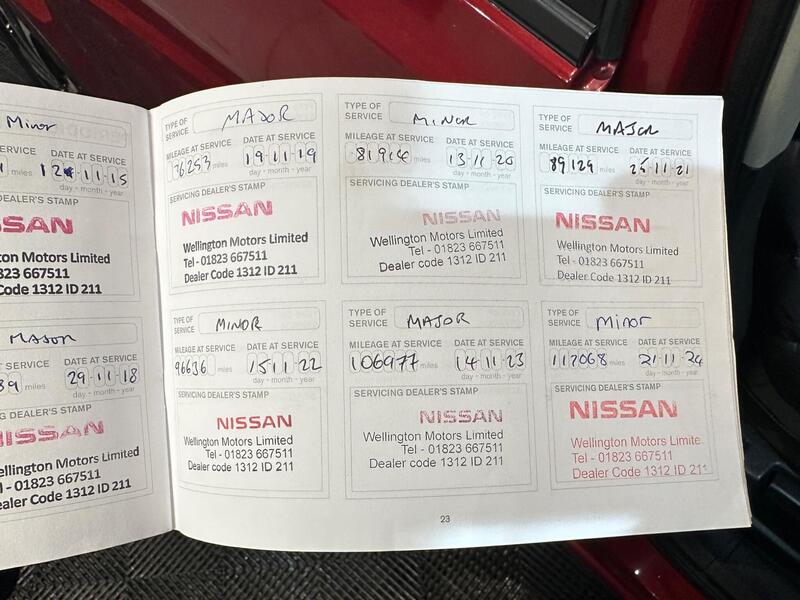 Minor
DATE AT SERVICE
miles 12 11 15
day - month - year
DEALER'S STAMP
SSAN
ton Motors Limited
823 667511
Code 1312 ID 211
MAJOR
AT SERVICE DATE AT SERVICE
89 miles 29-11-18
day - month - year
SERVICING DEALER'S STAMP
NISSAN
ellington Motors Limited
- 01823 667511
ealer Code 1312 ID 211
TYPE OF SERVICE MAJOR
MILEAGE AT SERVICE DATE AT SERVICE
76253 miles 19 11 19
day - month - year
SERVICING DEALER'S STAMP
NISSAN
Wellington Motors Limited
Tel - 01823 667511
Dealer Code 1312 ID 211
TYPE OF SERVICE MINOR
MILEAGE AT SERVICE DATE AT SERVICE
81914 miles 13 11 20
day - month - year
SERVICING DEALER'S STAMP
NISSAN
Wellington Motors Limited
Tel - 01823 667511
Dealer code 1312 ID 211
TYPE OF SERVICE MAJOR
MILEAGE AT SERVICE DATE AT SERVICE
89129 miles 25 11 21
day - month - year
SERVICING DEALER'S STAMP
NISSAN
Wellington Motors Limited
Tel - 01823 667511
Dealer Code 1312 ID 211
TYPE OF SERVICE MINOR
MILEAGE AT SERVICE DATE AT SERVICE
96636 miles 15 11 22
day - month - year
SERVICING DEALER'S STAMP
NISSAN
Wellington Motors Limited
Tel - 01823 667511
Dealer code 1312 ID 211
TYPE OF SERVICE MAJOR
MILEAGE AT SERVICE DATE AT SERVICE
106977 miles 14 11 23
day - month - year
SERVICING DEALER'S STAMP
NISSAN
Wellington Motors Limited
Tel - 01823 667511
Dealer code 1312 ID 211
TYPE OF SERVICE Minor
MILEAGE AT SERVICE DATE AT SERVICE
112068 miles 21 11 24
day - month - year
SERVICING DEALER'S STAMP
NISSAN
Wellington Motors Limite
Tel - 01823 667511
Dealer Code 1312 ID 21
23